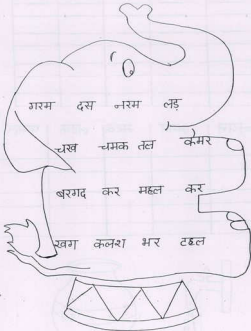 गरम दस नरम लड़
चख चमक तल कमर
बरगद कर महल कर
खग कलश भर टहल